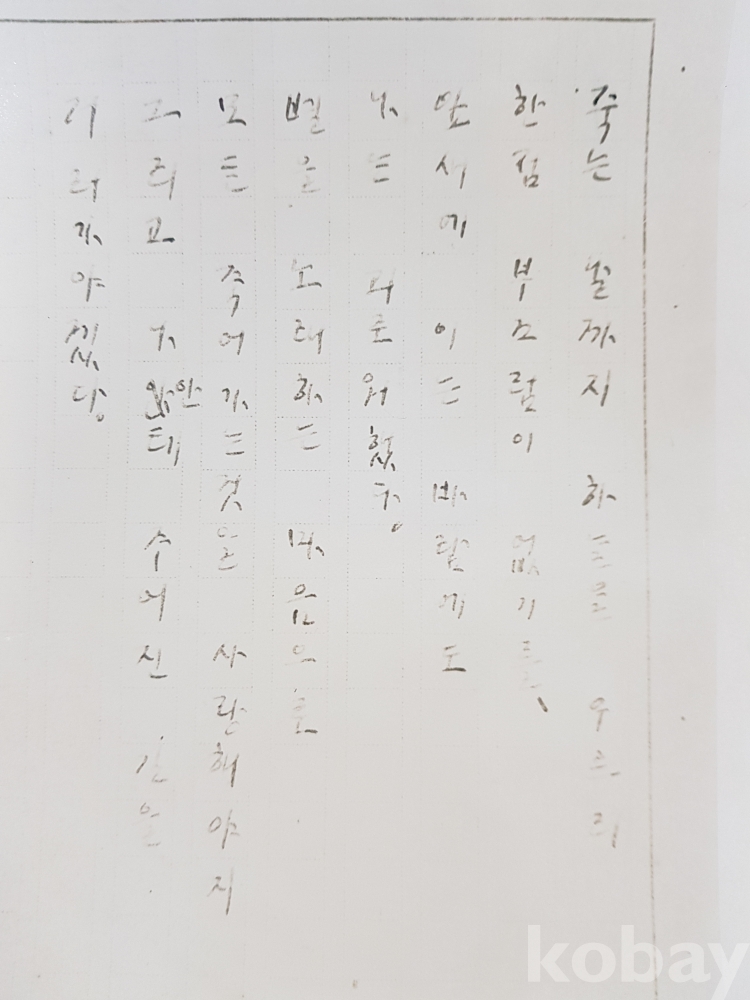 죽는 날까지 하늘을 우르러
한점 부끄럼이 없기를、
잎새에 이는 바람에도
나는 괴로워했다。
별을 노래하는 마음으로
모든 죽어가는것을 사랑해야지
그리고 나안테 주어진 길을
거러가야겠다。
kobay